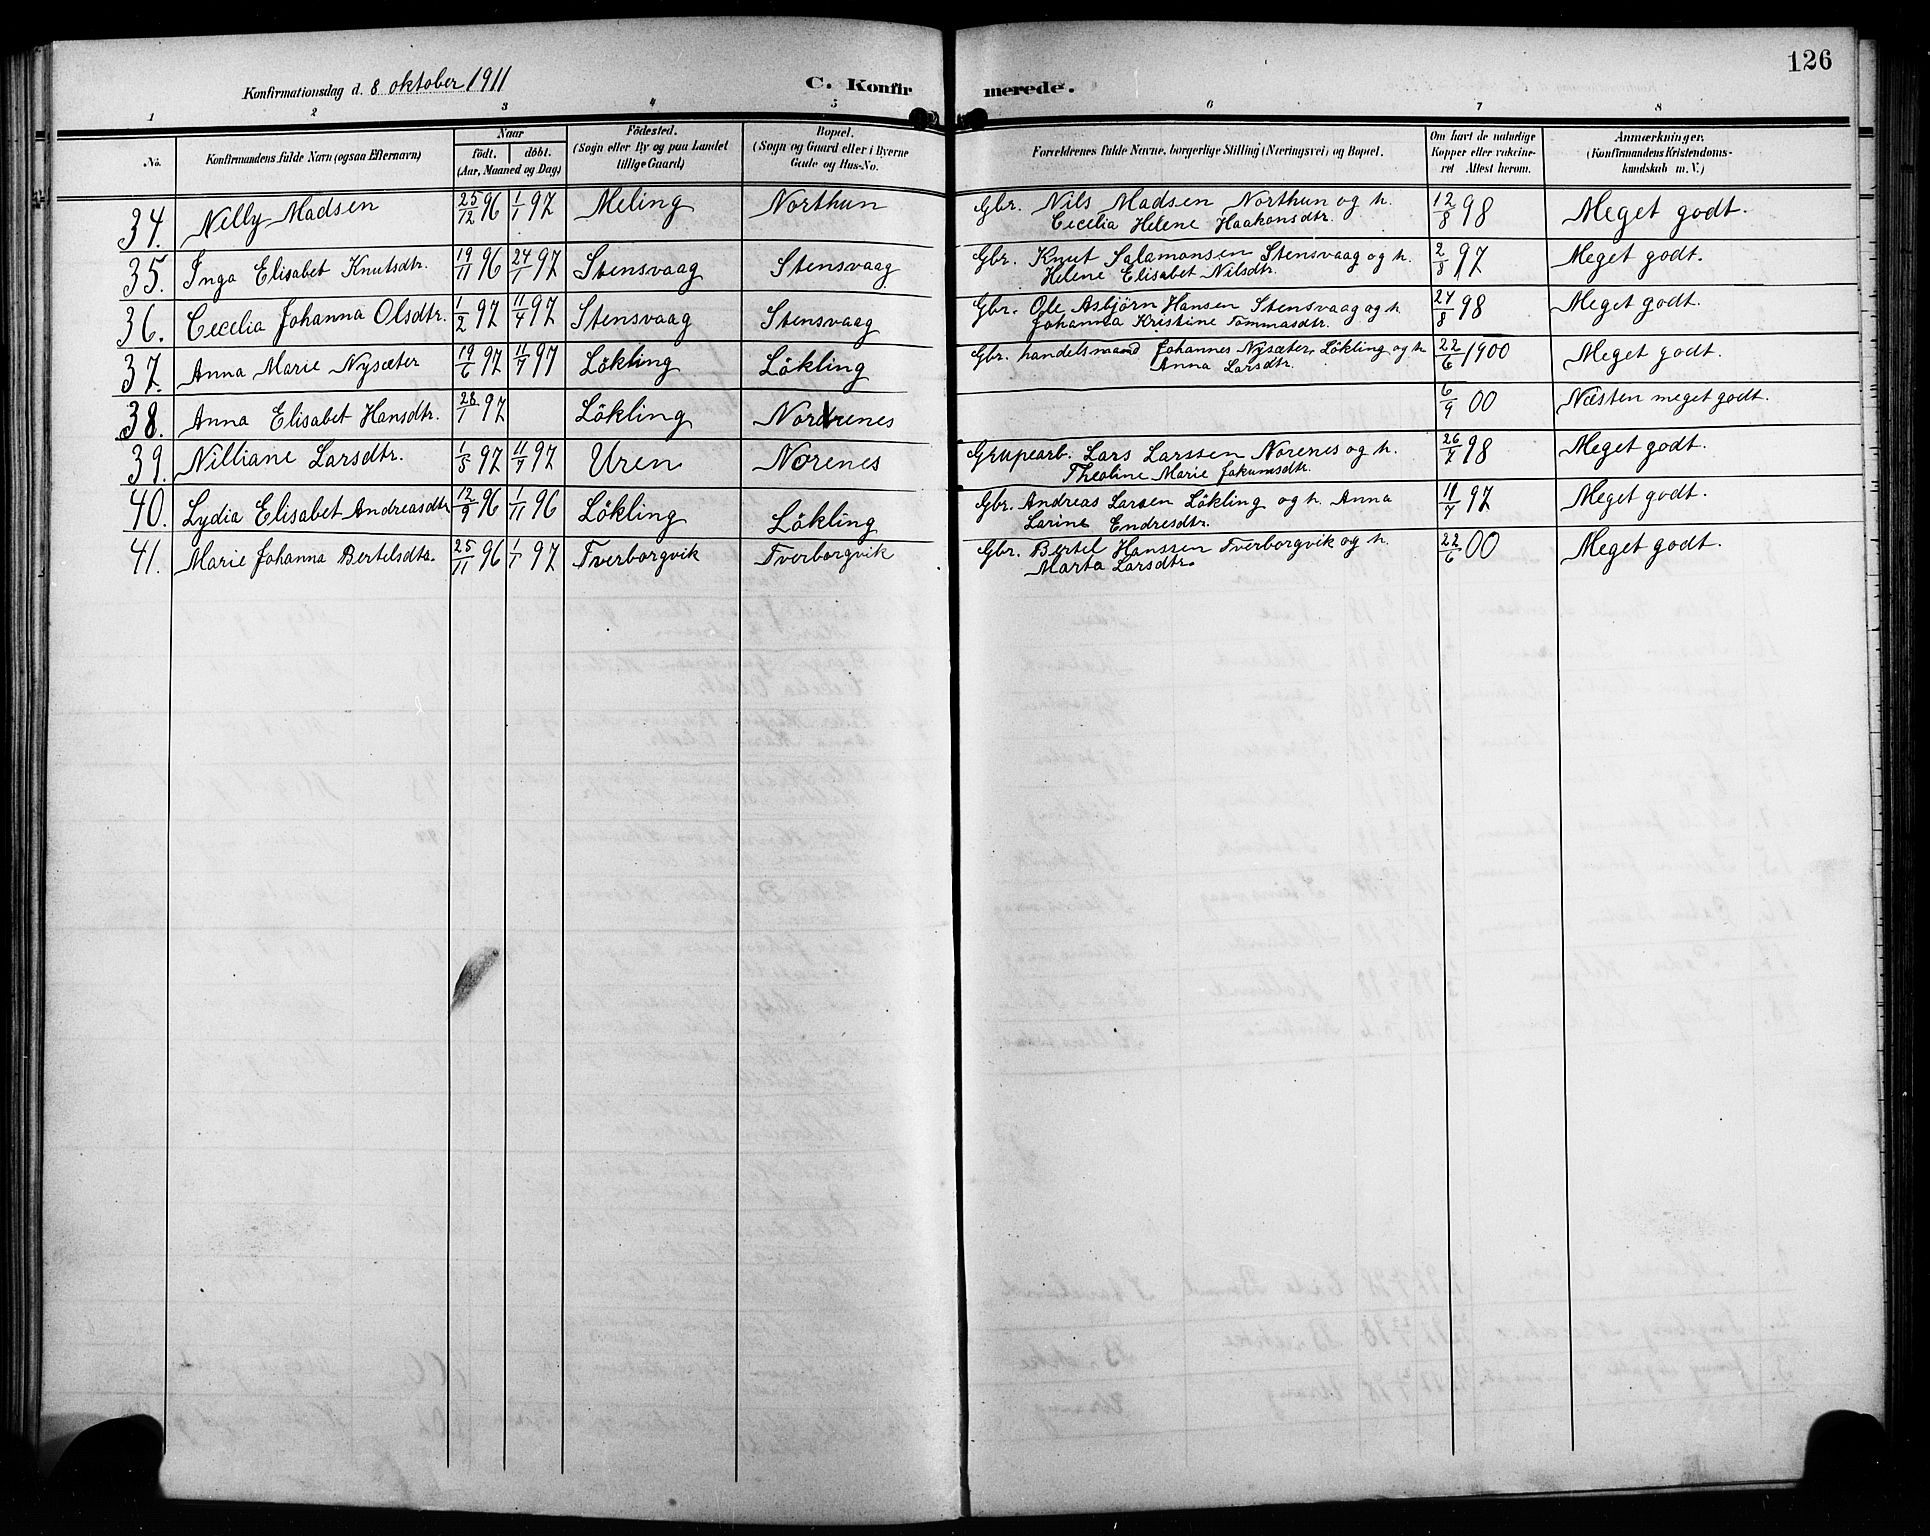 126
Konfirmationsdag d. 8 oktober 1911 C. Konfirmerede.
1 2 3 4 5 6 7 8
No. Konfirmandens fulde Navn (ogsaa Efternavn) Naar født. døbt. (Aar, Maaned og Dag) Fødested. (Sogn eller By og paa Landet tillige Gaard) Bopæl. (Sogn og Gaard eller i Byerne Gade og Hus-No. Forældrenes fulde Navne, borgerlige Stilling (Næringsvei) og Bopæl. Om havt de naturlige Kopper eller vaccineret Attest herom. Anmærkninger. (Konfirmandens Kristendomskundskab m. V.)
34. Nelly Madsen 25/12 96 1/1 97 Meling Northun Gbr. Nils Madsen Northun og h. 12/8 98 Meget godt.
Cecelia Helene Haakonsdtr.
35. Inga Elisabet Knutsdtr. 19/11 96 24/1 97 Stensvaag Stensvaag Gbr. Knut Salamonsen Stensvaag og h. 2/8 97 Meget godt.
Helene Elisabet Nilsdtr.
36. Cecelia Johanna Olsdtr. 1/2 97 11/4 97 Stensvaag Stensvaag Gbr. Ole Asbjörn Hansen Stensvaag og h. 24/8 98 Meget godt.
Johanna Kristine Tommasdtr.
37. Anna Marie Nysæter 19/6 97 11/7 97 Lökling Lökling Gbr. handelsmand Johannes Nysæter, Lökling og h 22/6 1900 Meget godt.
Anna Larsdtr.
38. Anna Elisabet Hansdtr. 28/1 97 Lökling Nordrenes 6/9 00 Næsten meget godt.
39. Nilliane Larsdtr. 1/5 97 11/7 97 Uren Norenes Grupearb. Lars Larssen Norenes og h. 26/7 98 Meget godt.
Thealine Marie Jakumsdtr.
40. Lydia Elisabet Andreasdtr 12/9 96 1/11 96 Lökling Lökling Gbr. Andreas Larsen Lökling og h. Anna 11/7 97 Meget godt.
Larine Endresdtr.
41. Marie Johanna Bertelsdtr. 25/11 96 1/1 97 Tverborgvik Tverborgvik Gbr. Bertel Hanssen Tverborgvik og h. 22/6 00 Meget godt.
Marta Larsdtr.